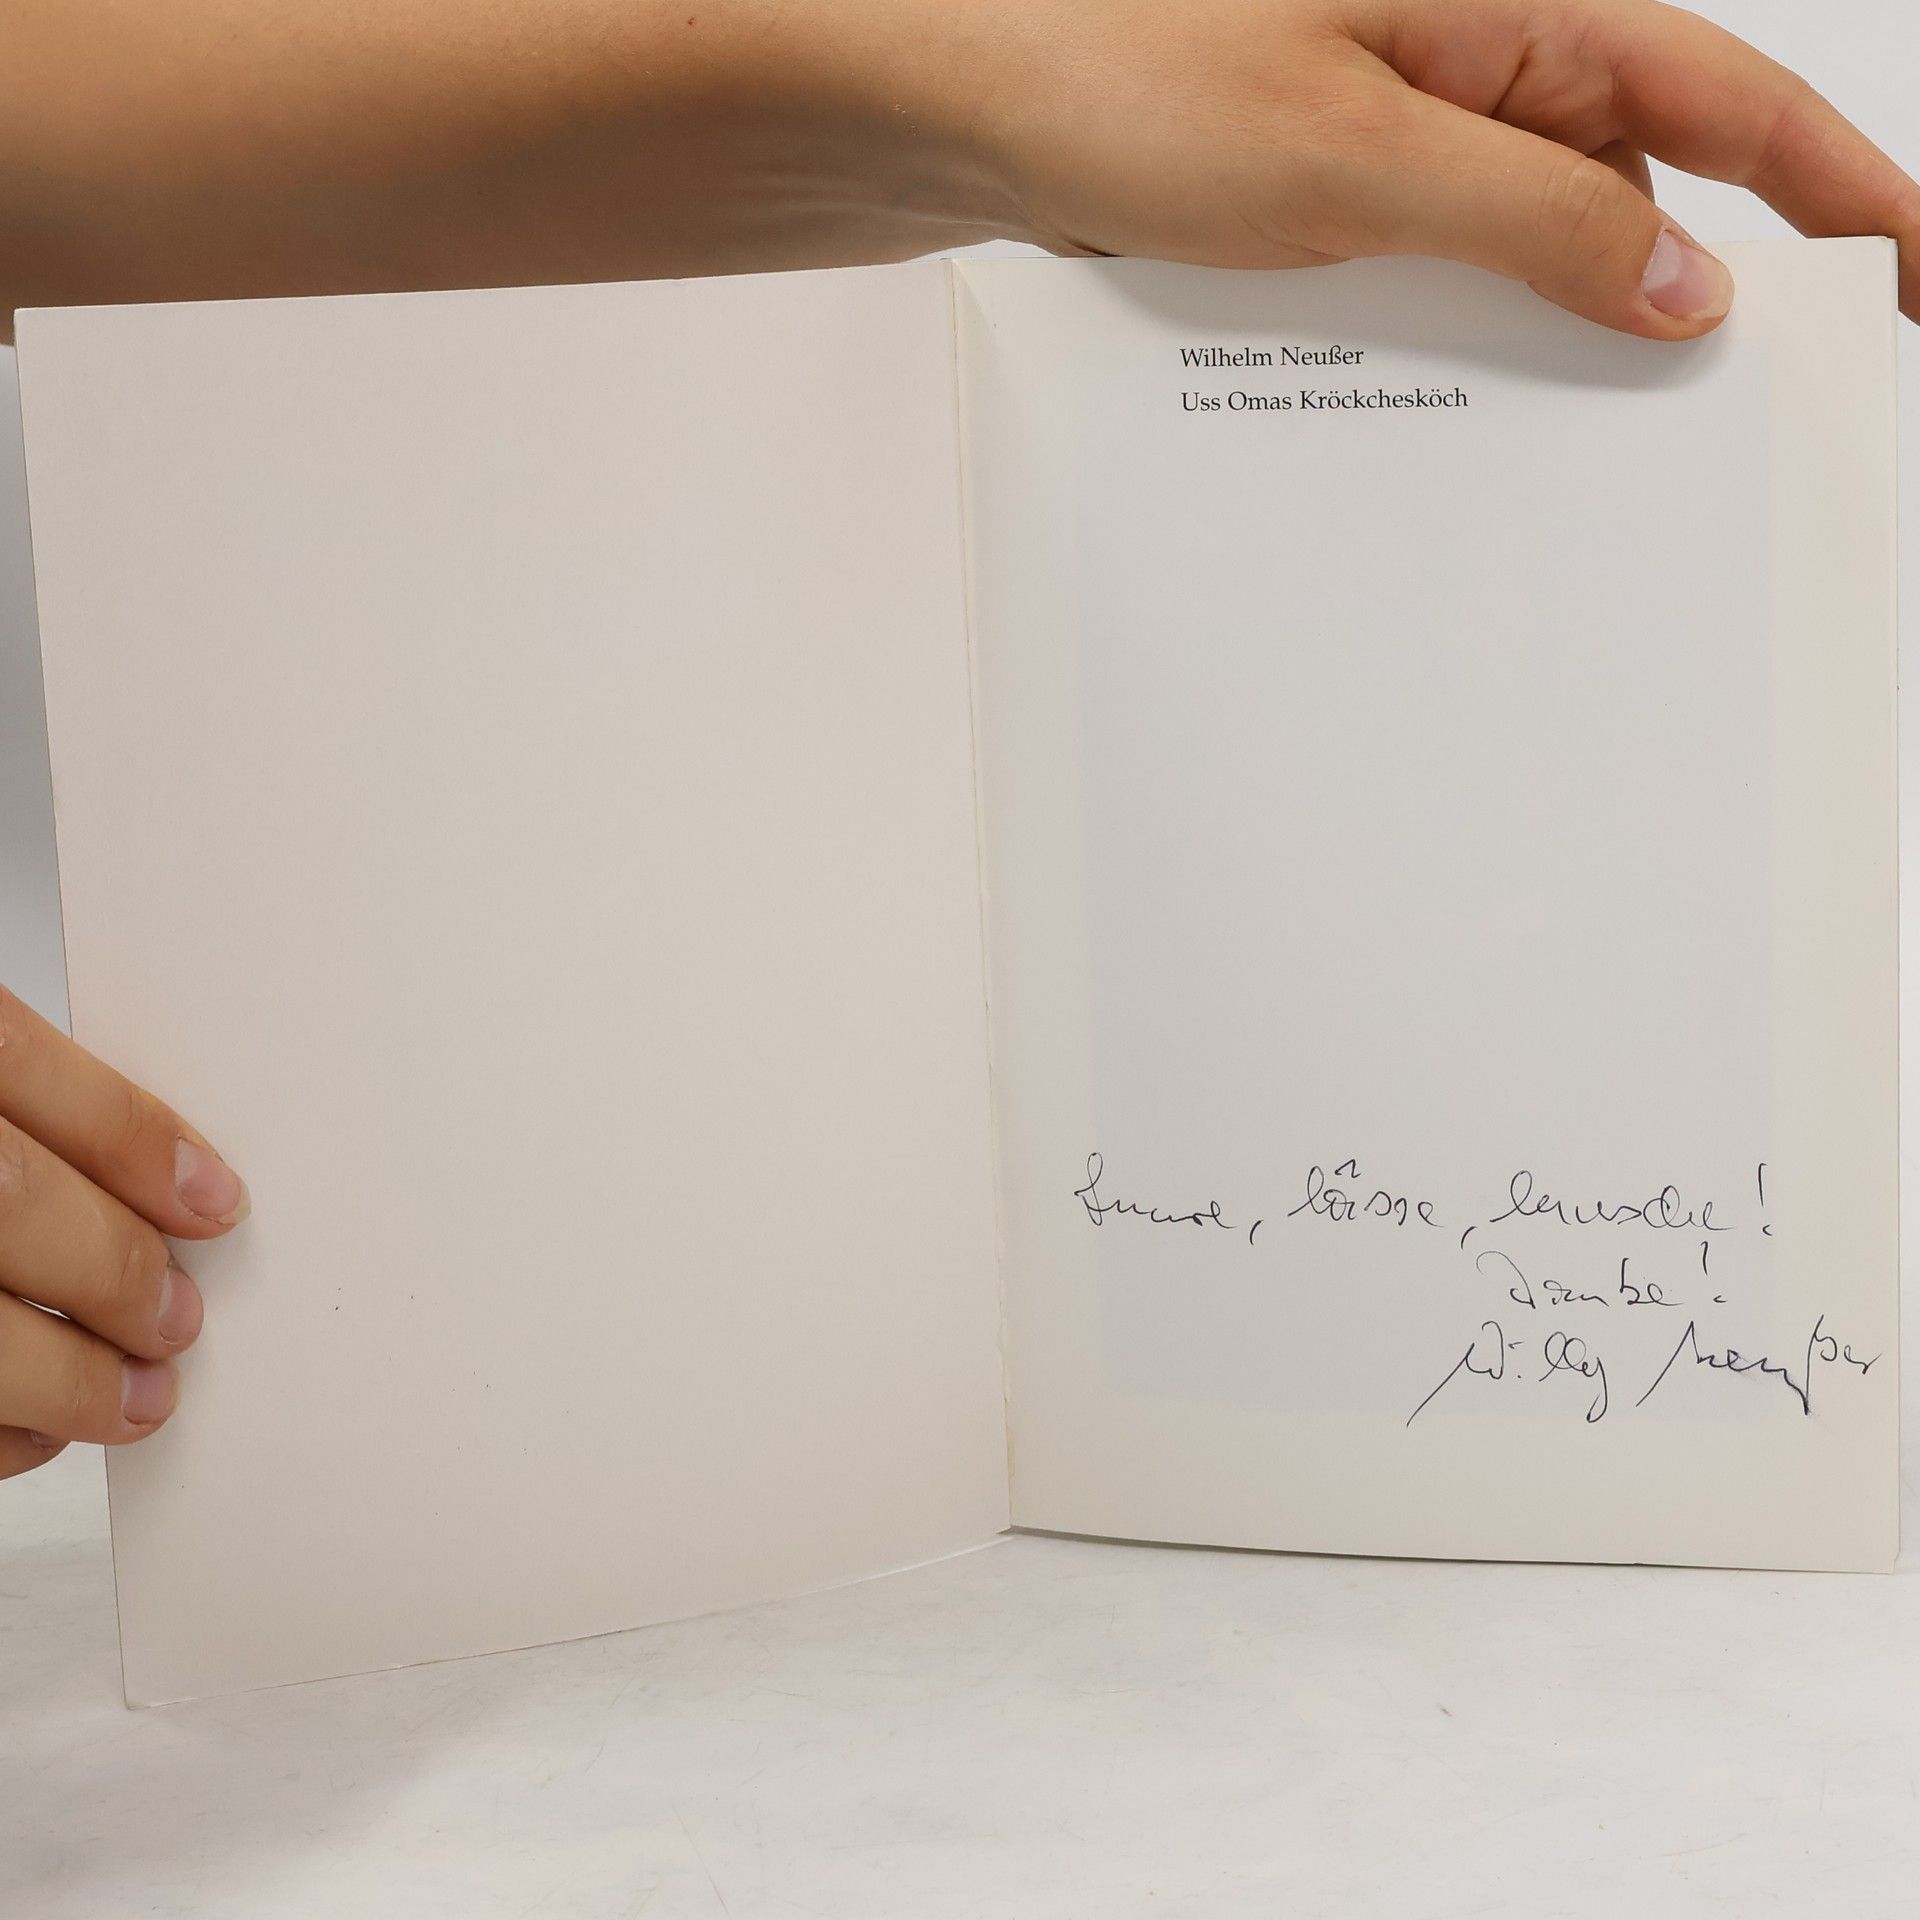 Wilhelm Neußer
Uss Omas Kröckchesköch
lässe, lausche!
Danke!
Willy Neußer